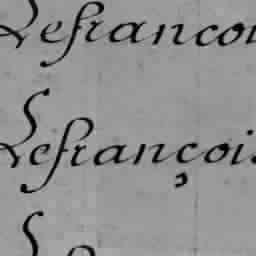 Lefrancoi
Lefrançois